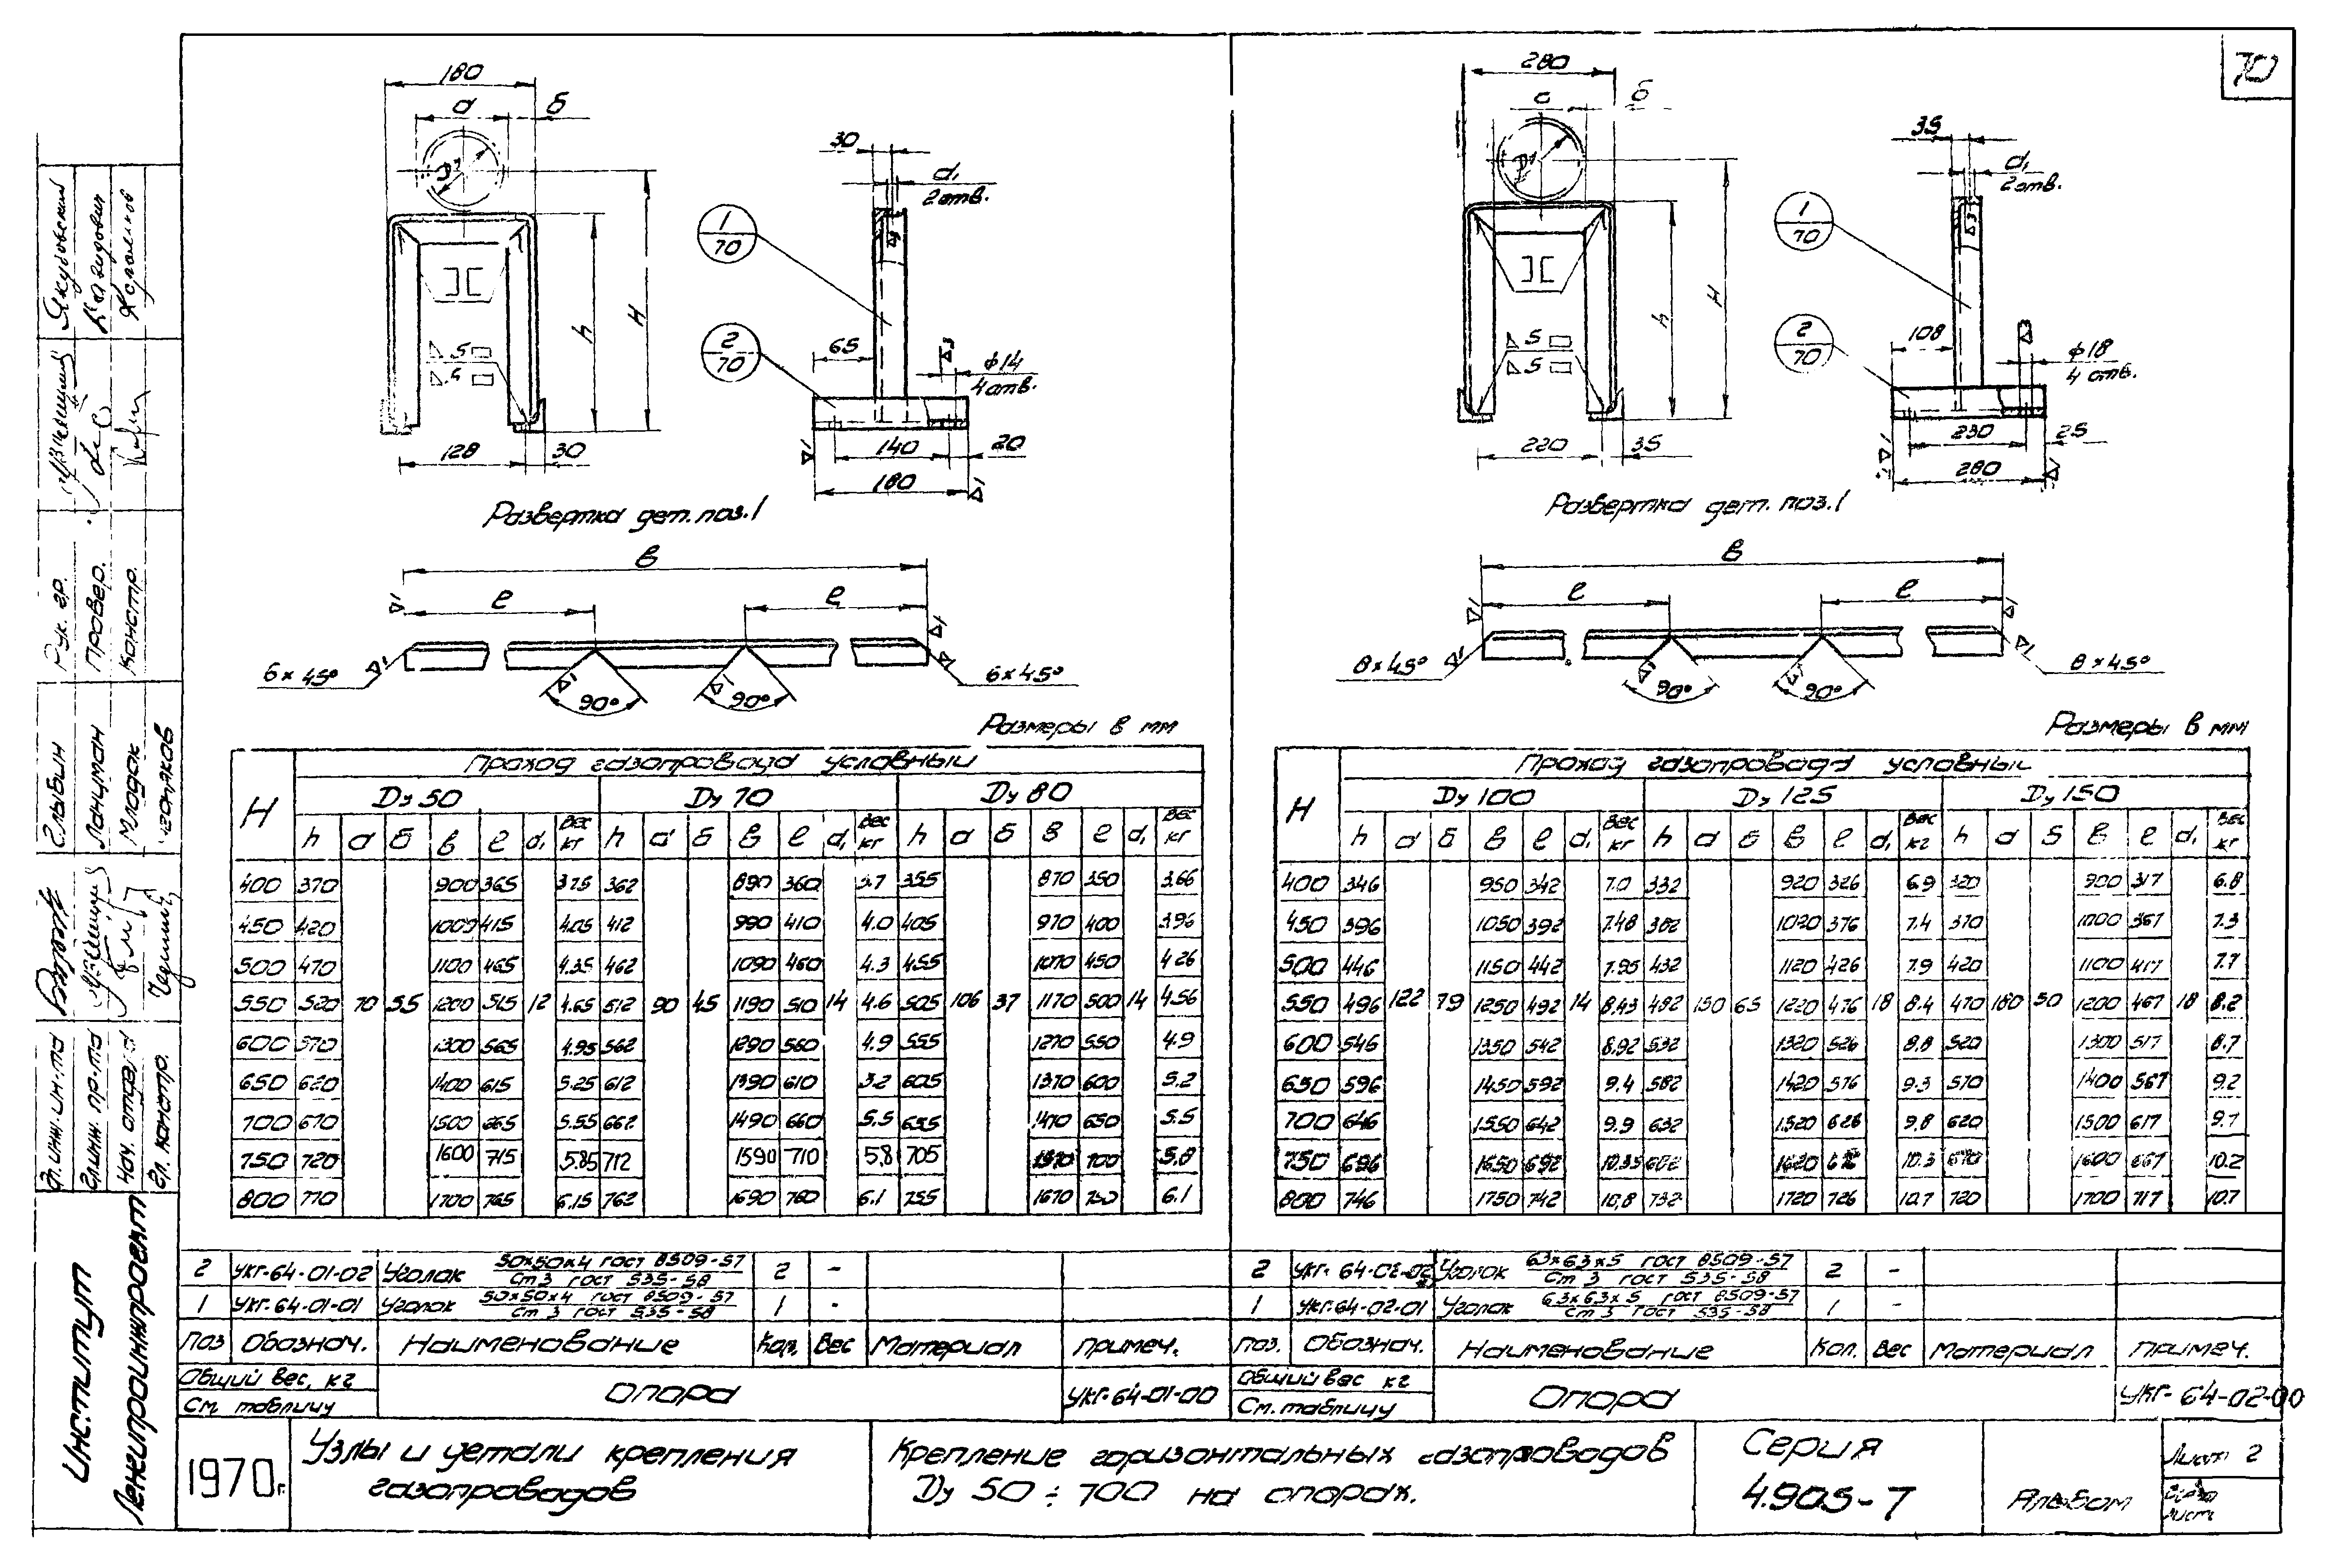 70
180
а
б
Д1
H
h
5
5
128
30
30
d1
2 отв.
1
70
2
70
65
ф14
4 отв.
140
20
180
Развертка дет. поз. 1
в
е
е
6×45°
90°
90°
6×45°
Размеры в мм
280
б
Д1
H
h
5
5
220
35
35
d1
2 отв.
1
70
2
70
108
ф18
4 отв.
230
25
280
Развертка дет. поз. 1
в
е
е
8×45°
90°
90°
8×45°
Размеры в мм
H
Проход газопровода условный
Dу 50 Dу 70 Dу 80
h а б в е d1 Вес кг h а б в е d1 Вес кг h а б в е d1 Вес кг
400 370 900 365 3.75 362 890 360 3.7 355 870 350 3.66
450 420 1000 415 4.05 412 990 410 4.0 405 970 400 3.96
500 470 1100 465 4.35 462 1090 460 4.3 455 1070 450 4.26
550 520 70 55 1200 515 12 4.65 512 90 45 1190 510 14 4.6 505 106 37 1170 500 14 4.56
600 570 1300 565 4.95 562 1290 560 4.9 555 1270 550 4.9
650 620 1400 615 5.25 612 1390 610 5.2 605 1370 600 5.2
700 670 1500 665 5.55 662 1490 660 5.5 655 1470 650 5.5
750 720 1600 715 5.85 712 1590 710 5,8 705 1570 700 5,8
800 770 1700 765 6.15 762 1690 760 6.1 755 1670 750 6.1
H
Проход газопровода условный
Dу 100 Dу 125 Dу 150
h а б в е d1 Вес кг h а б в е d1 Вес кг h а б в е d1 Вес кг
400 346 950 342 7.0 332 920 326 6.9 320 900 317 6.8
450 396 1050 392 7.48 382 1020 376 7.4 370 1000 367 7.3
500 446 1150 442 7.95 432 1120 426 7.9 420 1100 417 7.7
550 496 122 79 1250 492 14 8,43 482 150 65 1220 476 18 8.4 470 180 50 1200 467 18 8.2
600 546 1350 542 8.92 532 1320 526 8.8 520 1300 517 8.7
650 596 1450 592 9.4 582 1420 576 9.3 570 1400 567 9.2
700 646 1550 642 9.9 632 1520 626 9,8 620 1500 617 9.7
750 696 1650 692 10.35 682 1620 676 10.3 670 1600 667 10.2
800 746 1750 742 10,8 732 1720 726 10.7 720 1700 717 10.7
2 УКГ-64-01-02 Уголок 50×50×4 ГОСТ 8509-57 Ст 3 ГОСТ 535-58 2 -
1 УКГ-64-01-01 Уголок 50×50×4 ГОСТ 8509-57 Ст 3 ГОСТ 535-58 1 -
Поз Обознач. Наименование Кол. Вес Материал Примеч.
Общий вес, кг
См. таблицу
Опора
УКГ-64-01-00
2 УКГ-64-02-02 Уголок 63×63×5 ГОСТ 8509-57 Ст 3 ГОСТ 535-58 2 -
1 УКГ-64-02-01 Уголок 63×63×5 ГОСТ 8509-57 Ст 3 ГОСТ 535-58 1 -
Поз. Обознач. Наименование Кол. Вес Материал Примеч.
Общий вес кг
См. таблицу
Опора
УКГ-64-02-00
1970г.
Узлы и детали крепления
газопроводов
Крепление горизонтальных газопроводов
Dу 50 ÷ 700 на опорах.
Серия
4.905-7
Альбом
Лист 2
Институт
Ленгипроинжпроект
Гл. инж. ин.та
Гл. инж. пр-та
Нач. отдела
Гл. констр.
Глыбин
Ланцман
Млодок
Рук. гр.
Провер.
Констр.
Якубовский